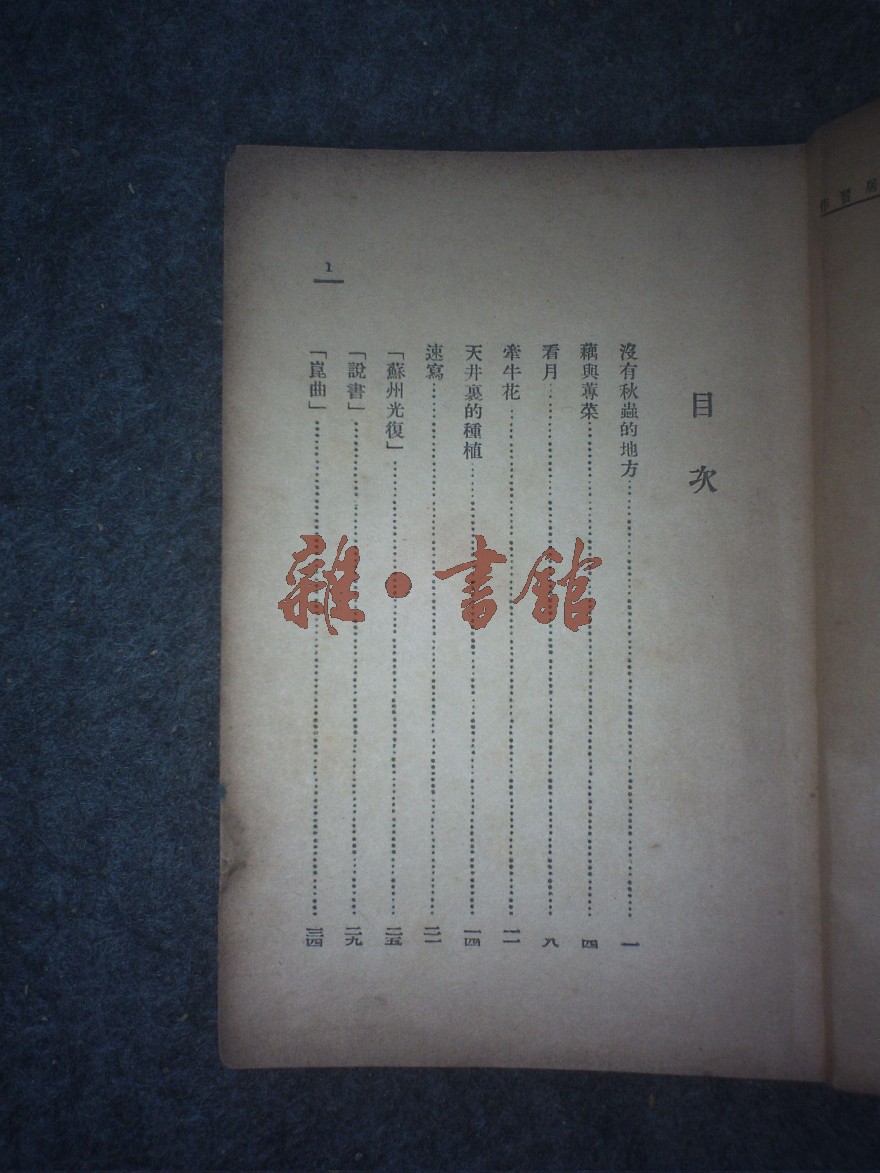 居習作
目次
沒有秋蟲的地方……一
藕與蓴菜……四
看月……八
牽牛花……一一
天井裏的種植……一四
速寫……二一
「蘇州光復」……二五
「說書」……二九
「崑曲」……三四
1
雜·書館